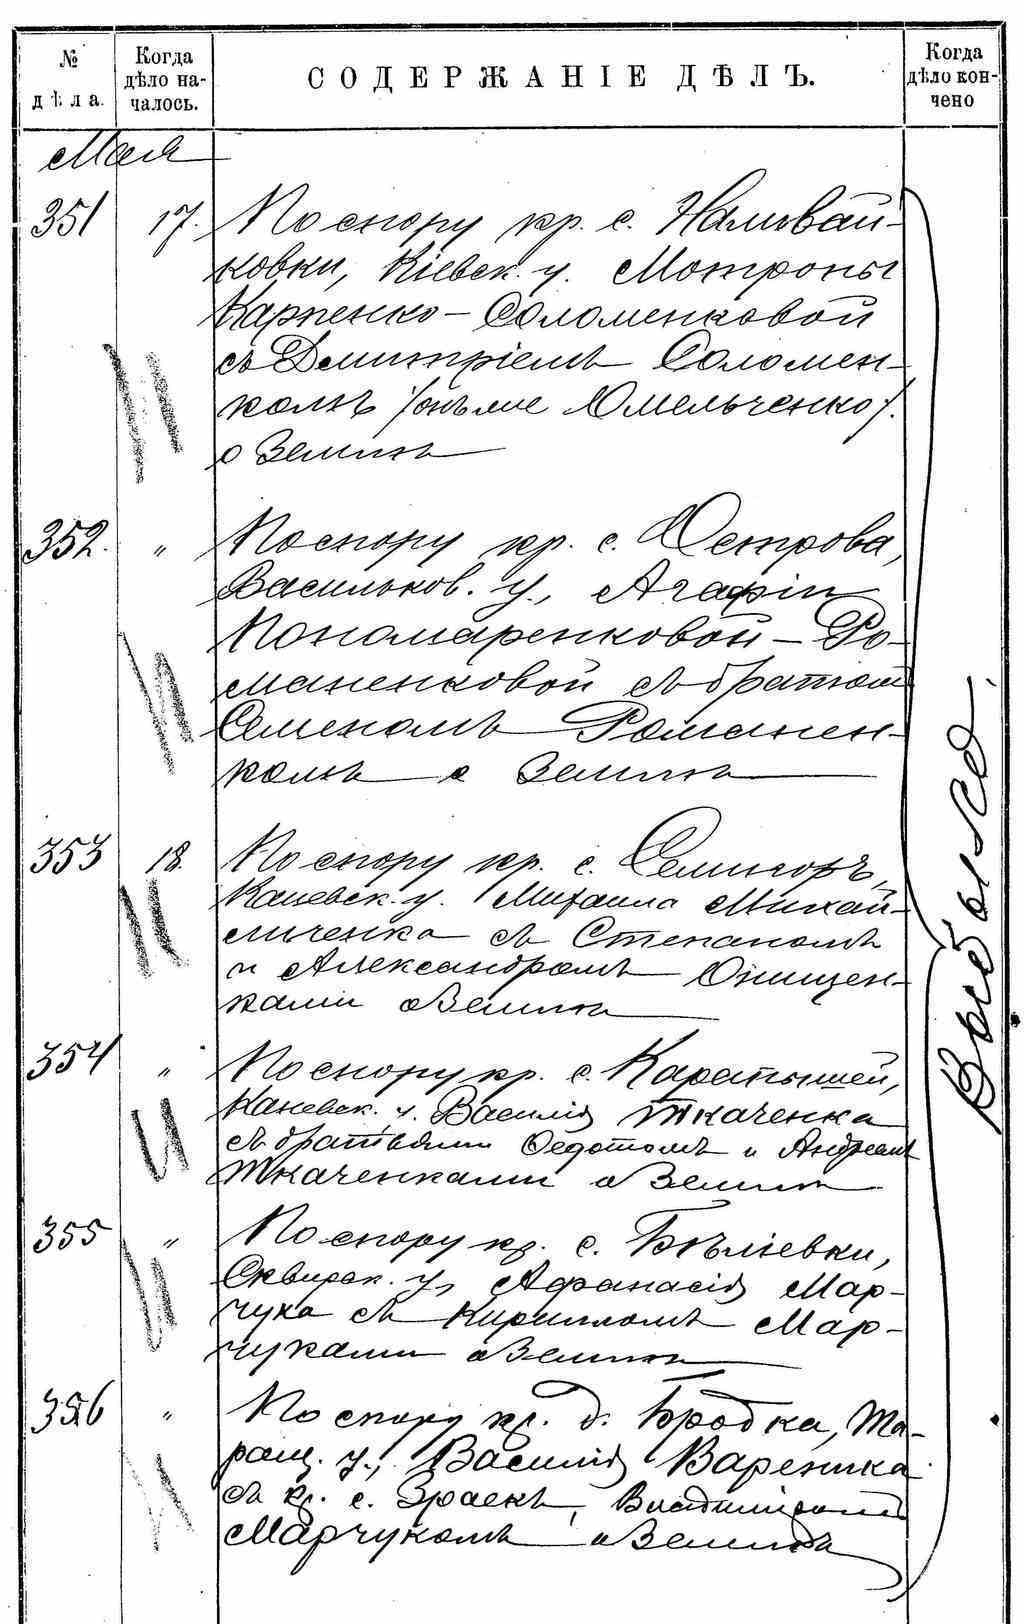 № дѣла.
Когда дѣло началось.
СОДЕРЖАНІЕ ДѢЛЪ.
Когда дѣло кончено
Мая
351 17. По спору кр. с. Наливай-
ковки, Кіевск. у. Мотроны
Карпенко-Соломенковой
съ Дмитріемъ Соломен-
комъ /онъ же Омельченко/.
о землѣ
352. " По спору кр. с. Острова,
Васильков. у., Агафіи
Пономаренковой-Ро-
маненковой съ братом
Семеномъ Романен-
комъ о землѣ
353 18. По спору кр. с. Селигоръ,
Каневск. у. Михаила Михай-
личенка съ Степаномъ
и Александромъ Онищен-
ками о землѣ
354 " По спору кр. с. Каратышей,
Каневск. у. Василія Ткаченка
съ братьями Федотомъ и Андреемъ
Ткаченками о землѣ
355 " По спору кр. с. Бѣліевки,
Сквирск. у, Афанасія Мар-
чука съ Кирилломъ Мар-
чуками о землѣ
356 " По спору кр. д. Бродка, Та-
ращ. у., Василія Вареника
съ кр. с.
Марчукомъ о землѣ